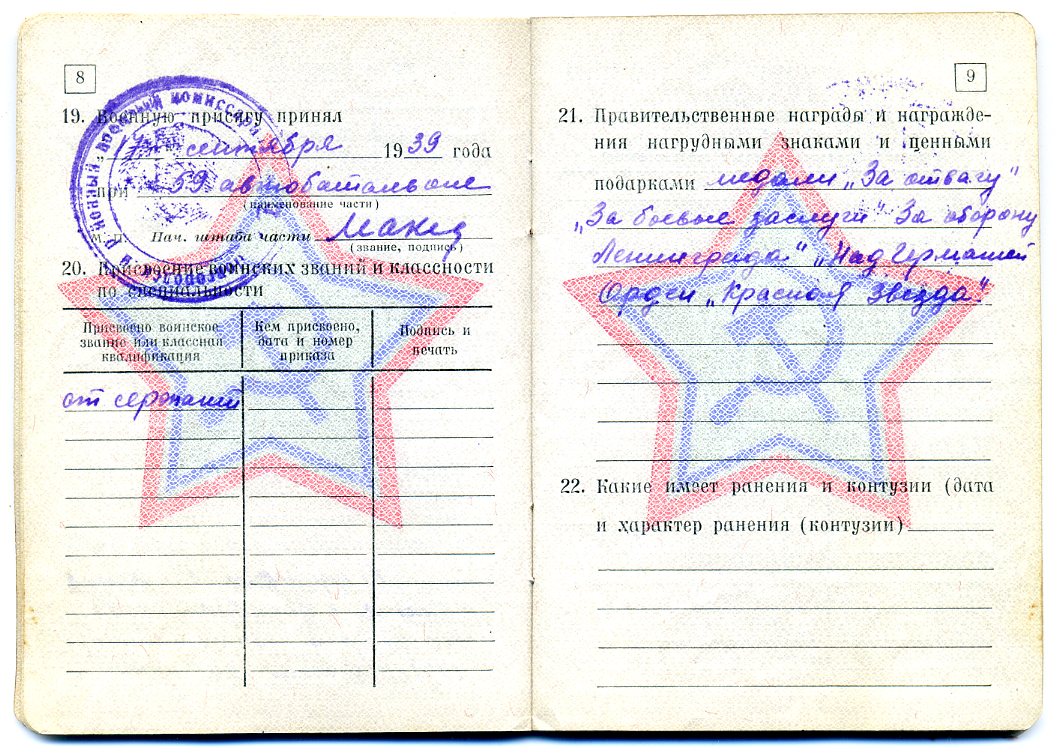 8
19. Военную присягу принял
„17“ сентября 1939 года
при 59 автобатальоне
(наименование части)
Нач. штаба части
(звание, подпись)
20. Присвоение воинских званий и классности
по специальности
Присвоено воинское
звание или классная
квалификация
Кем присвоено,
дата и номер
приказа
Подпись и
печать
ст сержант
9
21. Правительственные награды и награжде-
ния нагрудными знаками и ценными
подарками медали „За отвагу"
„За боевые заслуги" За оборону
Ленинграда" „Над Германией
Орден „Красная звезда".
22. Какие имеет ранения и контузии (дата
и характер ранения (контузии)